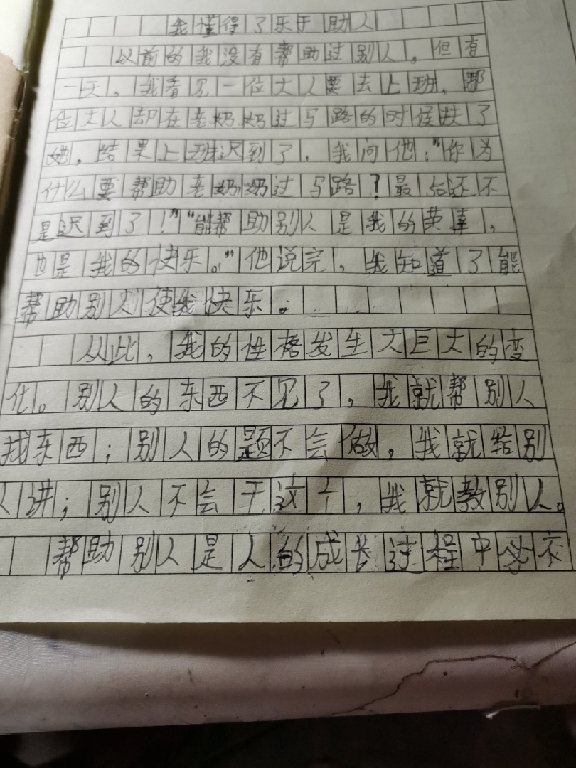 我懂得了乐于助人
以前的我没有帮助过别人。但有
一天，我看见一位大人要去上班，那
位大人却在老奶奶过马路的时候扶了
她，结果上班迟到了，我问他："你为
什么要帮助老奶奶过马路？最后还不
是迟到了！""能帮助别人是我的荣幸，
也是我的快乐。"他说完，我知道了能
帮助别人使我快乐。
从此，我的性格发生大巨大的变
化。别人的东西不见了，我就帮别人
找东西；别人的题不会做，我就给别
人讲；别人不会干这个，我就教别人。
帮助别人是人的成长过程中必不